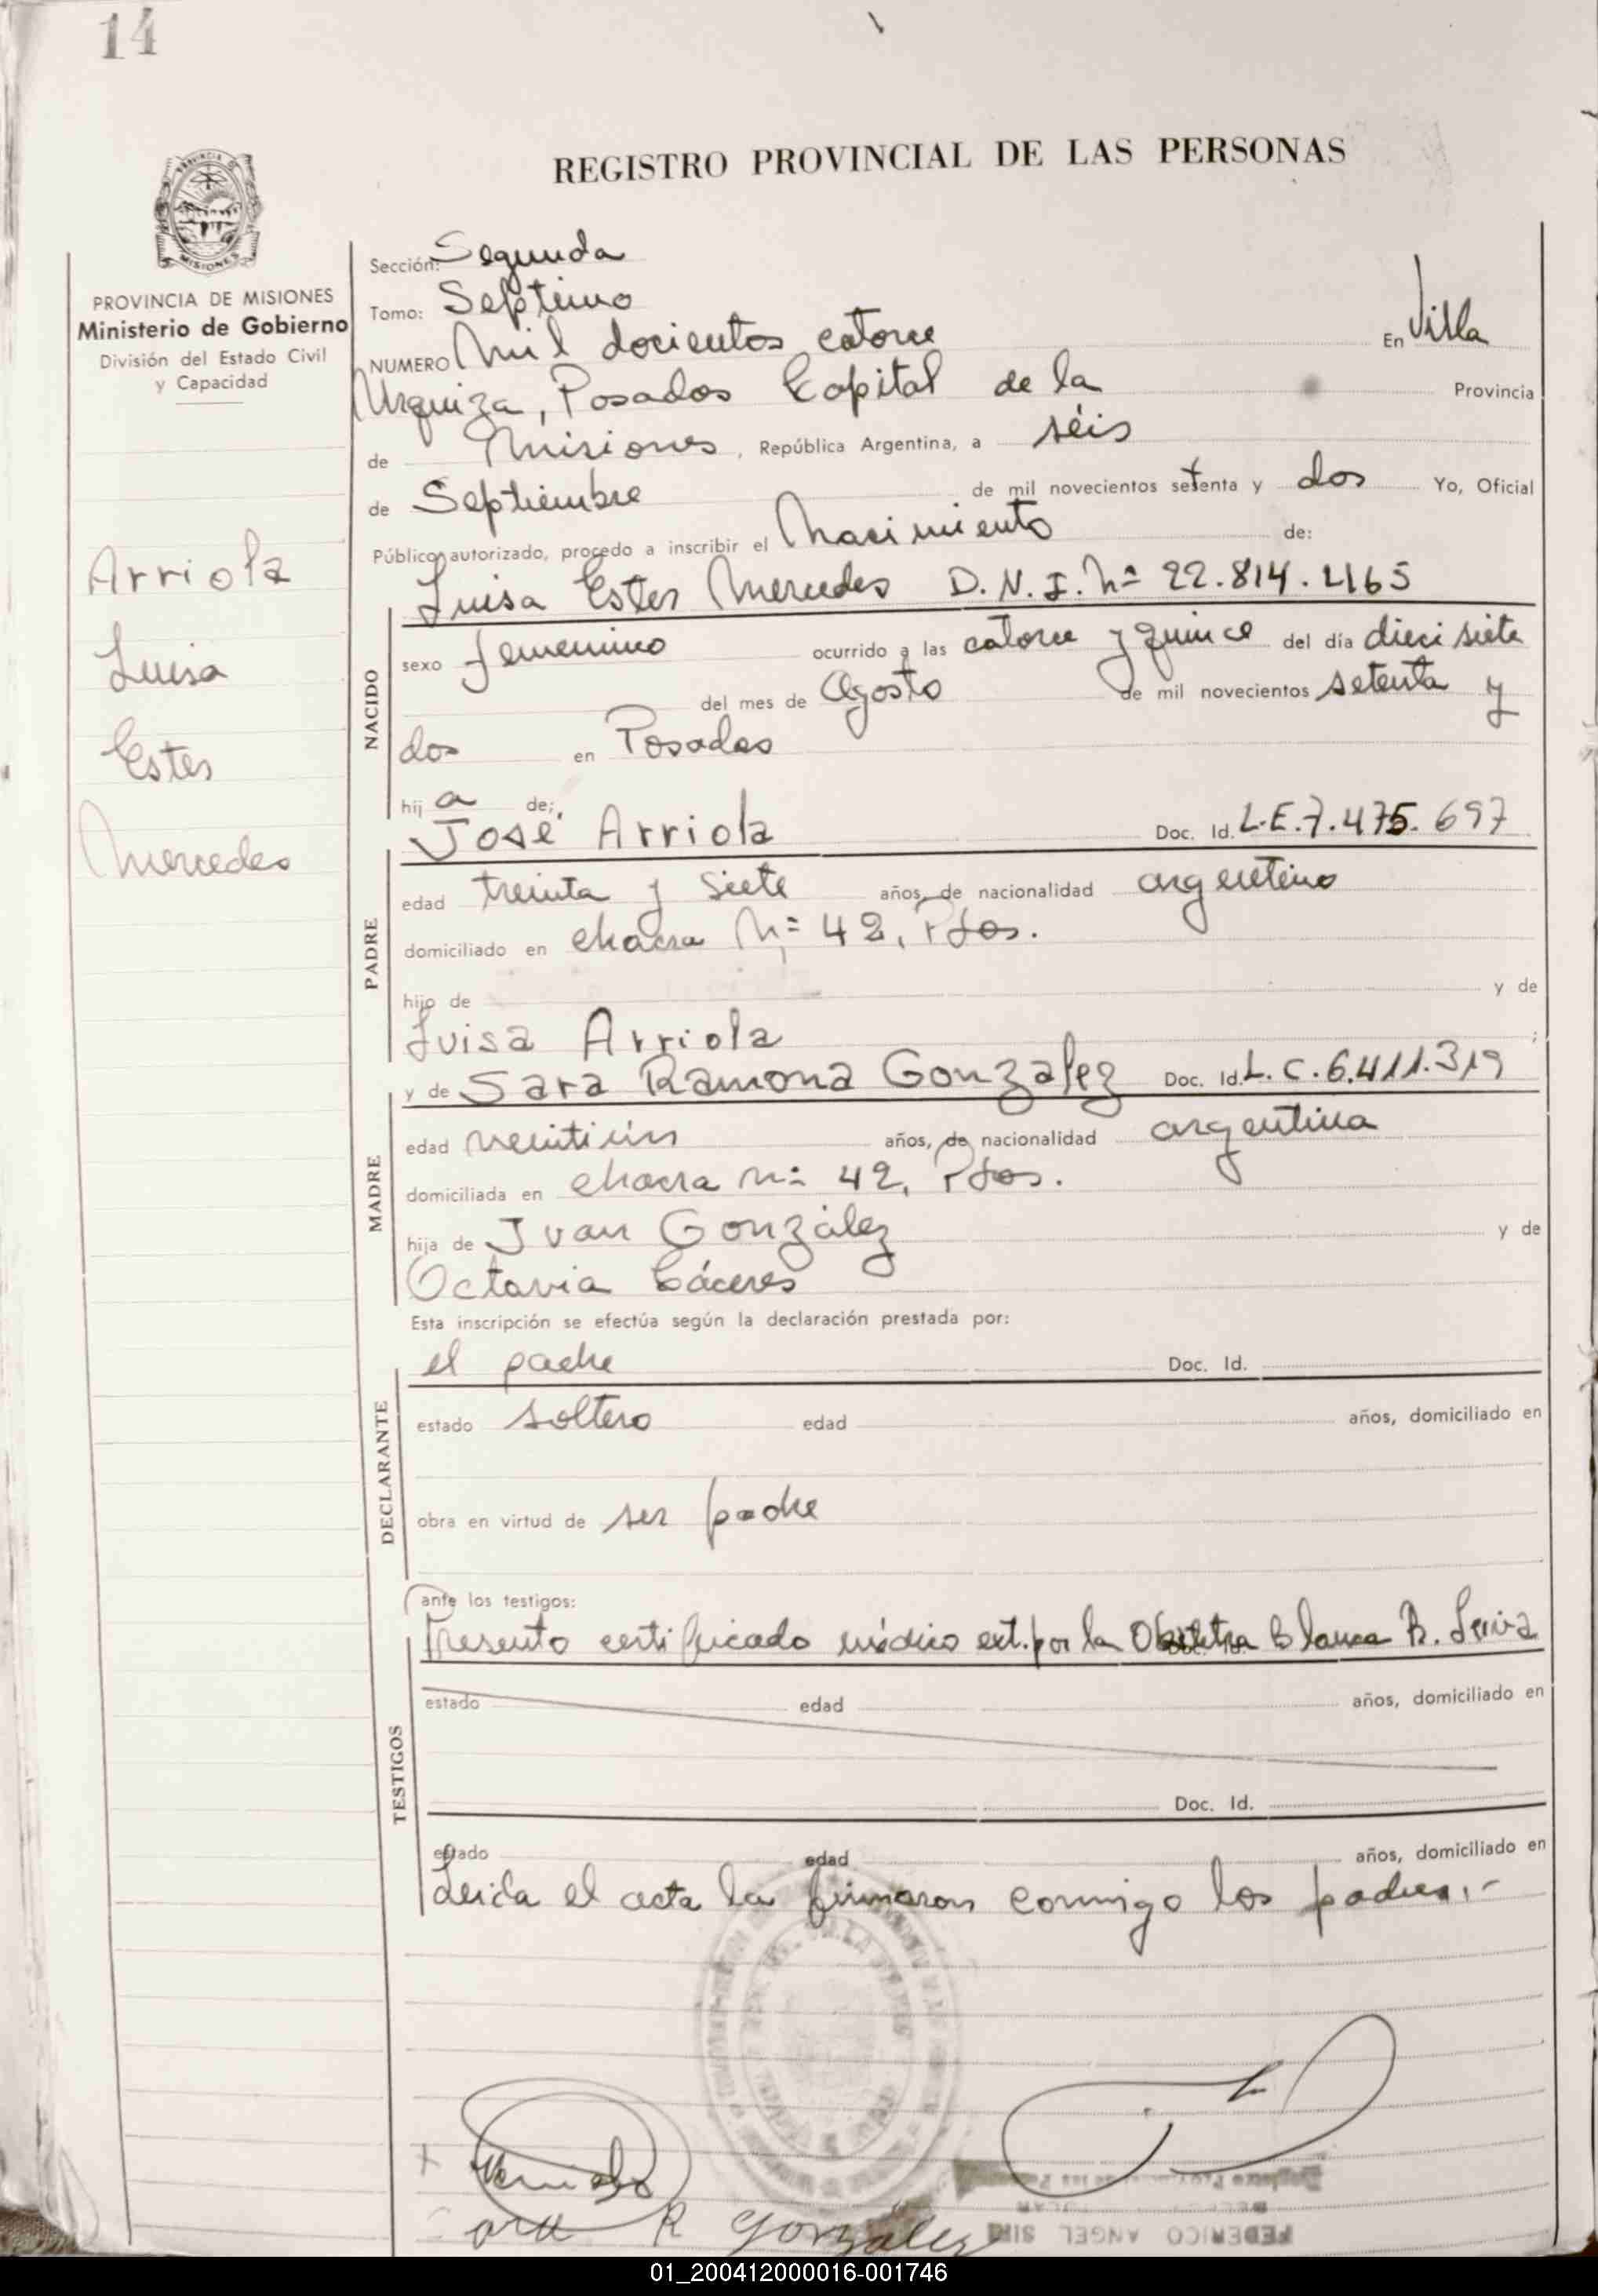 14
REGISTRO PROVINCIAL DE LAS PERSONAS
MISIONES
PROVINCIA DE MISIONES
Ministerio de Gobierno
División del Estado Civil
y Capacidad
Arriola
Luisa
Ester
Mercedes
Sección: Segunda
Tomo: Septimo
NUMERO Mil docientos catorce En Villa
Urquiza, Posadas Capital de la Provincia
de Misiones, República Argentina, a séis
de Septiembre de mil novecientos setenta y dos Yo, Oficial
Público autorizado, procedo a inscribir el Nacimiento de:
Luisa Ester Mercedes D.N.I. Nº 22.814.465
NACIDO
sexo femenino ocurrido a las catorce y quince del día dieci siete
del mes de Agosto de mil novecientos setenta y
dos en Posadas
hij a de:
José Arriola Doc. Id. L.E.7.475.697
PADRE
edad treinta y siete años, de nacionalidad argentino
domiciliado en chacra Nº 42, Pdas.
hijo de y de
Luisa Arriola ;
y de Sara Ramona González Doc. Id. L.C.6.411.319
MADRE
edad veintiún años, de nacionalidad argentina
domiciliada en chacra nº 42, Pdas.
hija de Juan González y de
Octavia Cáceres
Esta inscripción se efectúa según la declaración prestada por:
el padre Doc. Id.
DECLARANTE
estado soltero edad años, domiciliado en
obra en virtud de ser padre
ante los testigos:
Presento certificado médico ext. por la Obstetra Blanca R.
TESTIGOS
estado edad años, domiciliado en
Doc. Id.
estado edad años, domiciliado en
Leida el acta la firmaron conmigo los padres.-
R González
FEDERICO ANGEL
01_200412000016-001746